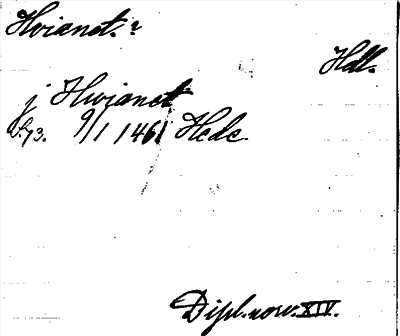 Hvianet.?
Hdl.
j Hwianet
S. 73. 9/1 1461 Hede.
Dipl. norv. XIV.